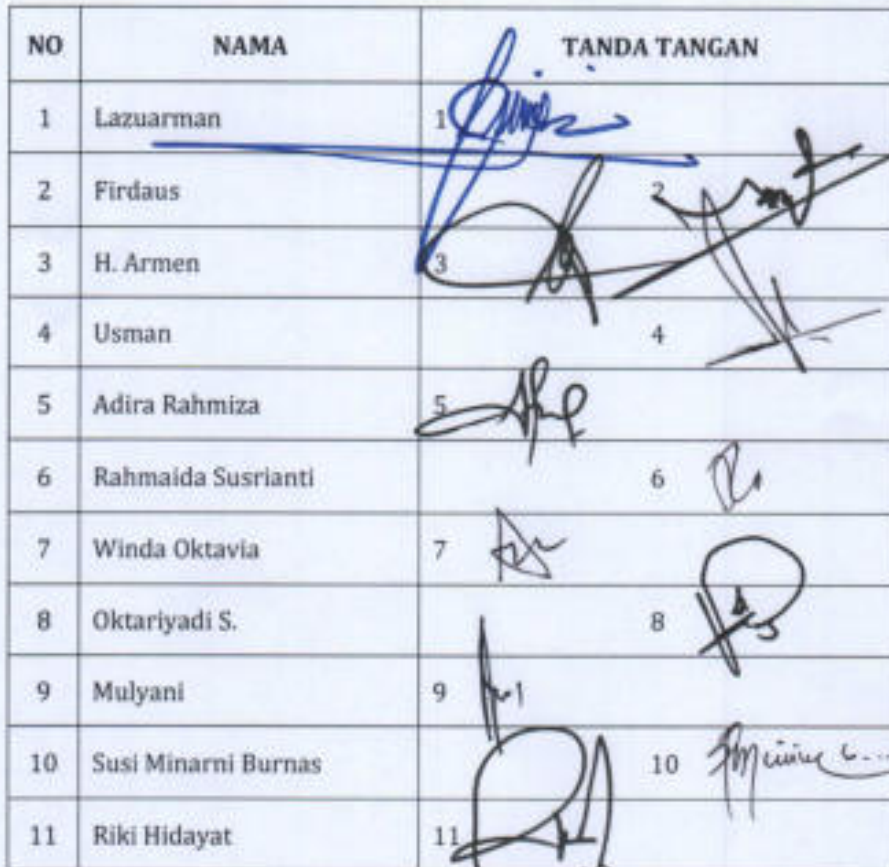 NO NAMA TANDA TANGAN
1 Lazuarman 1
2 Firdaus 2
3 H. Armen 3
4 Usman 4
5 Adira Rahmiza 5
6 Rahmaida Susrianti 6
7 Winda Oktavia 7
8 Oktariyadi S. 8
9 Mulyani 9
10 Susi Minarni Burnas 10
11 Riki Hidayat 11